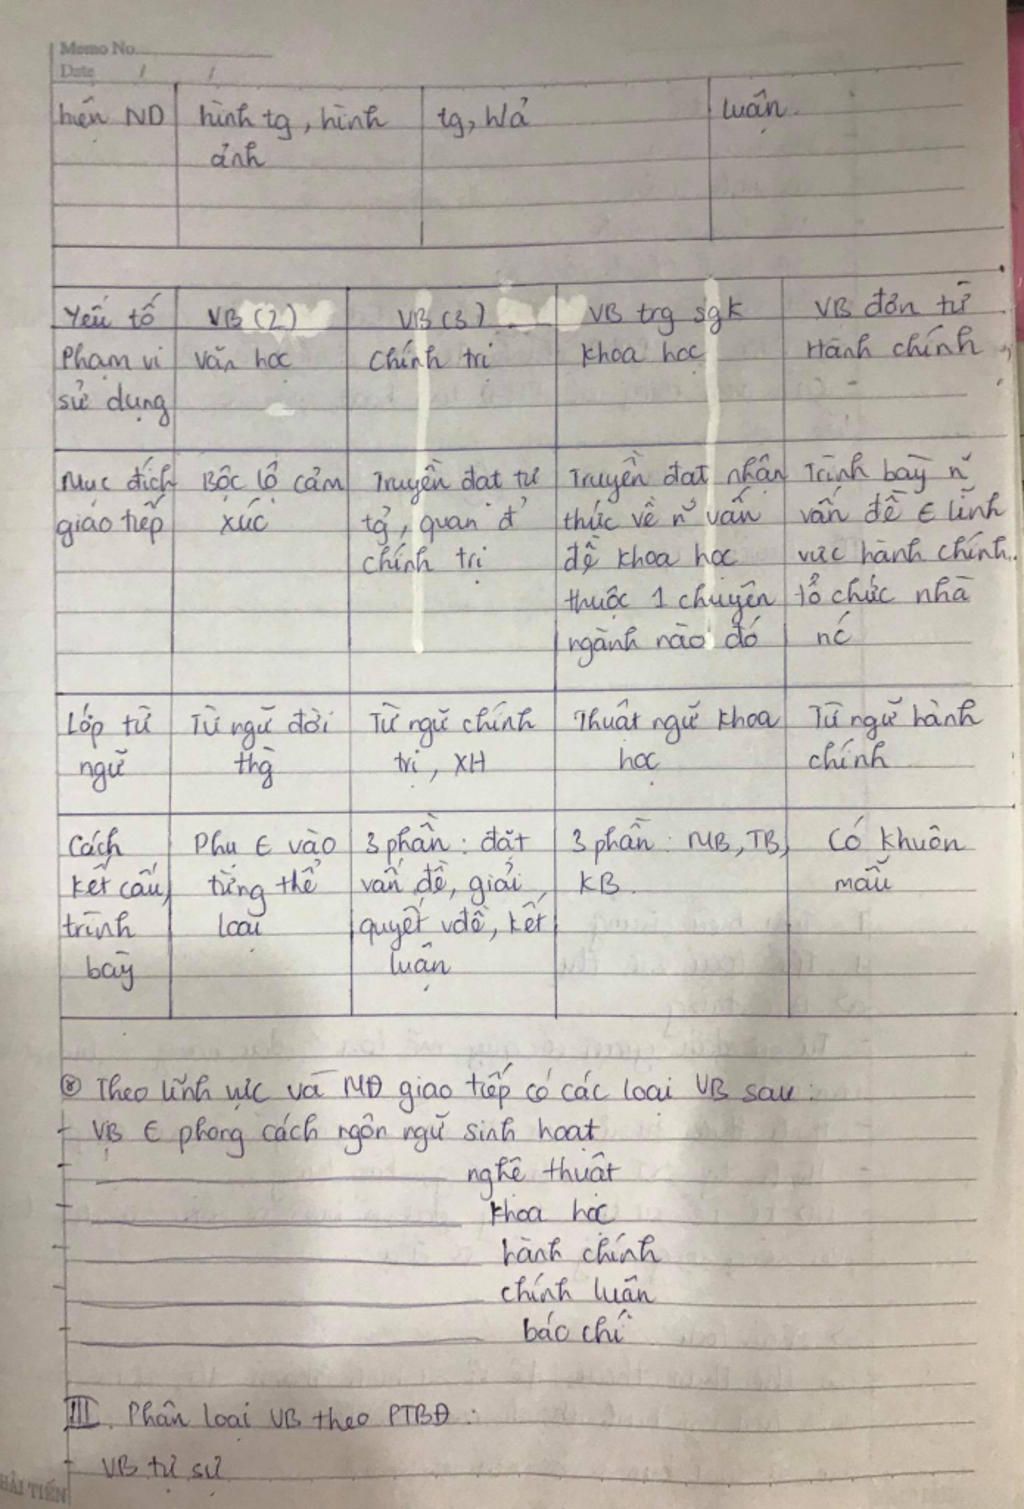 Memo No.
Date / /
hiện ND hình tg, hình tg, h/ả luận.
ảnh
Yếu tố VB (2) VB (3) VB trg sgk VB đơn từ
Phạm vi văn học Chính trị Khoa học Hành chính
sử dụng
Mục đích Bộc lộ cảm Truyền đạt tư Truyền đạt nhận Trình bày n~
giao tiếp xúc tg̉, quan đ' thức về n~ vấn vấn đề ∈ lĩnh
chính trị đề khoa học vực hành chính,
thuộc 1 chuyên tổ chức nhà
ngành nào đó nc
Lớp từ Từ ngữ đời Từ ngữ chính Thuật ngữ khoa Từ ngữ hành
ngữ thg̀ trị, XH học chính
Cách Phụ ∈ vào 3 phần: đặt 3 phần: MB, TB, Có khuôn
kết cấu, từng thể vấn đề, giải KB. mẫu
trình loại quyết vđề, kết
bày luận
⊛ Theo lĩnh vực và MĐ giao tiếp có các loại VB sau:
- VB ∈ phong cách ngôn ngữ sinh hoạt
- nghệ thuật
- khoa học
- hành chính
- chính luận
- báo chí
III. Phân loại VB theo PTBĐ:
- VB tự sự
HẢI TIẾN